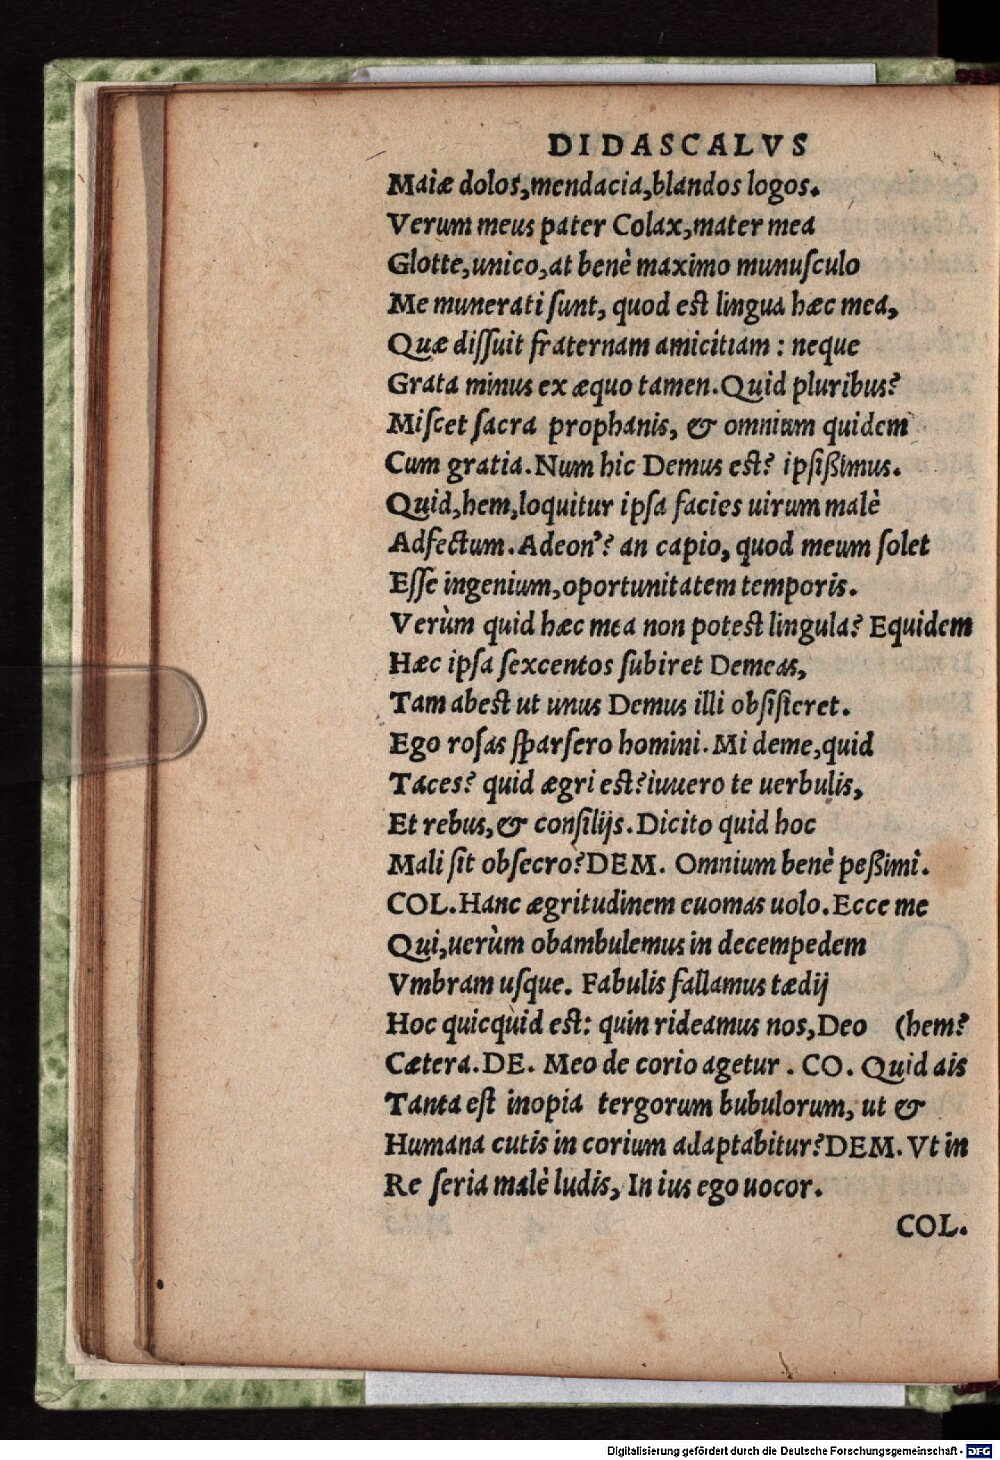 DIDASCALVS
Maiæ dolos,mendacia,blandos logos.
Verum meus pater Colax,mater mea
Glotte,unico,at benè maximo munuſculo
Me munerati ſunt, quod est lingua hæc mea,
Quæ diſſuit fraternam amicitiam : neque
Grata minus ex æquo tamen.Quid pluribus?
Miſcet ſacra prophanis, & omnium quidem
Cum gratia.Num hic Demus est? ipſißimus.
Quid,hem,loquitur ipſa facies uirum malè
Adfectum.Adeon'? an capio, quod meum ſolet
Eſſe ingenium,oportunitatem temporis.
Verùm quid hæc mea non potest lingula? Equidem
Hæc ipſa ſexcentos ſubiret Demeas,
Tam abest ut unus Demus illi obſiſteret.
Ego roſas ſparſero homini.Mi deme,quid
Taces? quid ægri est?iuuero te uerbulis,
Et rebus,& conſilijs.Dicito quid hoc
Mali ſit obſecro?DEM. Omnium benè peßimi.
COL.Hanc ægritudinem euomas uolo.Ecce me
Qui,uerùm obambulemus in decempedem
Vmbram uſque. Fabulis fallamus tædij
Hoc quicquid est: quin rideamus nos,Deo (hem?
Cætera.DE. Meo de corio agetur . CO. Quid ais
Tanta est inopia tergorum bubulorum, ut &
Humana cutis in corium adaptabitur?DEM. Vt in
Re ſeria malè ludis, In ius ego uocor.
COL.
Digitalisierung gefördert durch die Deutsche Forschungsgemeinschaft - DFG